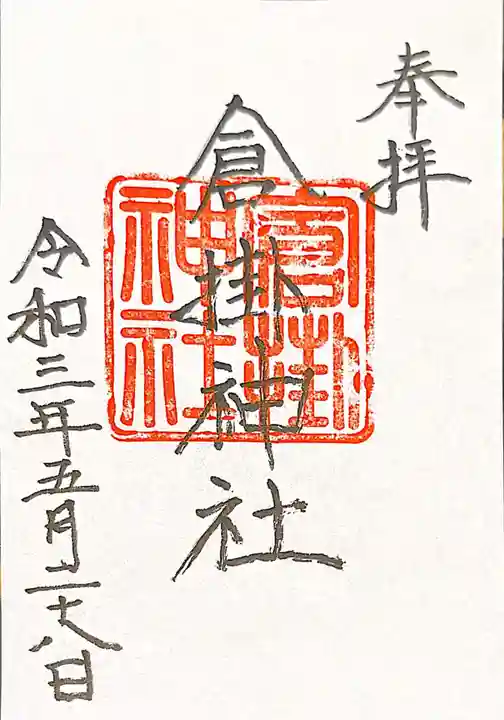 奉拝
倉掛神社
令和三年五月二十八日
倉掛
神社